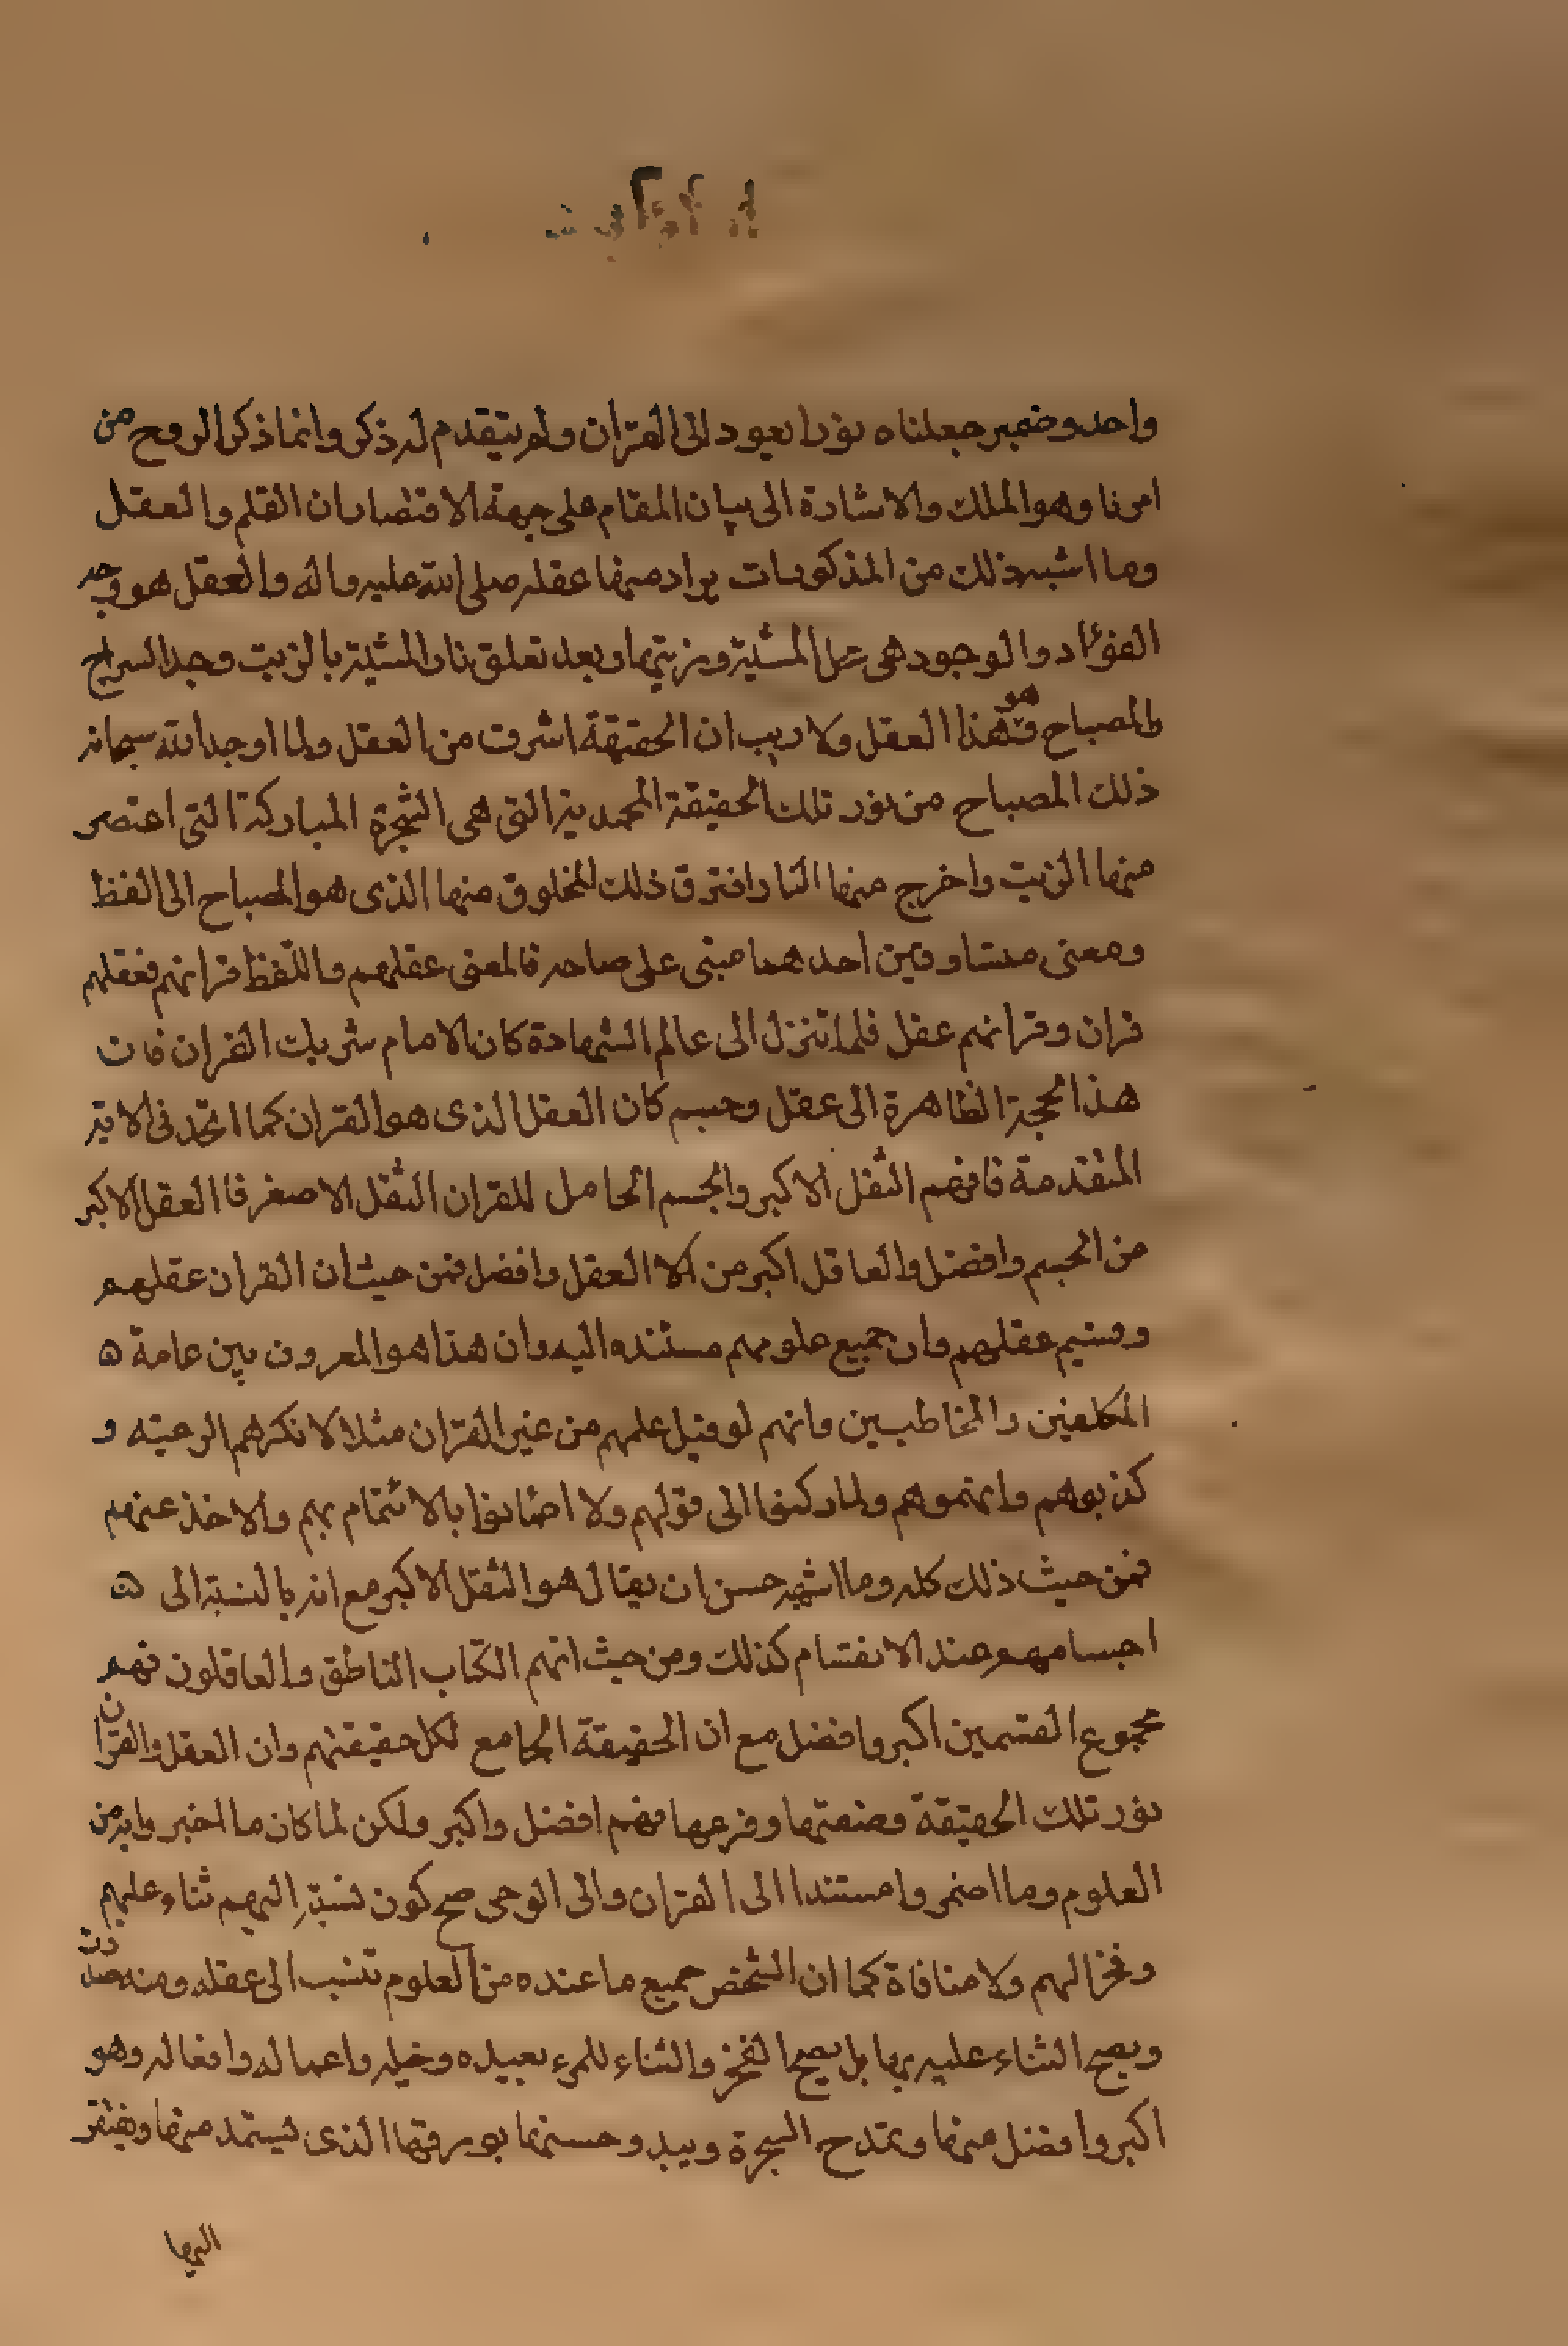 واحد وضمير جعلناه نورا يعود الى القران ولم يتقدم له ذكر وانما ذكر الروح من
امرنا وهو الملك والاشارة الى بيان المقام على جهة الاقتصار ان القلم والعقل
وما اشبه ذلك من المذكورات يراد منها عقله صلى الله عليه واله والعقل هو وجه
الفؤاد والوجود هي محل المشية وزيتها وبعد تعلق نار المشية بالزيت وجد السراج
والمصباح وهو هذا العقل ولا ريب ان الحقيقة اشرف من العقل ولما اوجد الله سبحانه
ذلك المصباح من نور تلك الحقيقة المحمدية التي هي الشجرة المباركة التي اعتصر
منها الزيت واخرج منها النار افترق ذلك المخلوق منها الذي هو المصباح الى لفظ
ومعنى متساوقين احدهما مبنى على صاحبه فالمعنى عقلهم واللفظ قرانهم فعقلهم
قران وقرانهم عقل فلما تنزل الى عالم الشهادة كان الامام شريك القران فان
هذا الحجة الظاهرة الى عقل وجسم كان العقل الذى هو القران كما اتحد في الاية
المتقدمة فافهم الثقل الاكبر والجسم الحامل للقران الثقل الاصغر فا العقل الاكبر
من الجسم وافضل والعاقل اكبر من العقل وافضل فمن حيث ان القران عقلهم
عقلهم وان جميع علومهم مستنده اليه وان هذا هو المعروف بين عامة
المكلفين والمخاطبين وانهم لو قيل علمهم من غير القران مثلا لانكرهم الرعيته و
كذبوهم واتهموهم ولما ركنوا الى قولهم ولا بالائتمام بهم والاخذ عنهم
فمن حيث ذلك كله وما اشبهه حسن ان يقال هو الثقل الاكبر مع انه بالنسبة الى
اجسامهم عند الانقسام كذلك ومن حيث انهم الكتاب الناطق والعاقلون فهم
مجموع القسمين اكبر وافضل مع ان الحقيقة الجامع لكل حقيقتهم وان العقل والقران
نور تلك الحقيقة وصنعتها وفرعها فهم افضل واكبر ولكن لما كان ما اخبروا به من
العلوم وما اضمروا مستندا الى القران والى الوحى صح كون نسبته اليهم ثناء عليهم
وفخرا لهم ولا منافاة كما ان الشخص جميع ما عنده من العلوم تنسب الى عقله ومنه صدرت
ويصح الثناء عليه بها بل يصح الفخر والثناء للمرء بعبيده وخيله واعماله وافعاله وهو
اكبر وافضل منها وتمتدح الشجرة ويبدو حسنها بورقها الذى يستمد منها ويفتقر
اليها